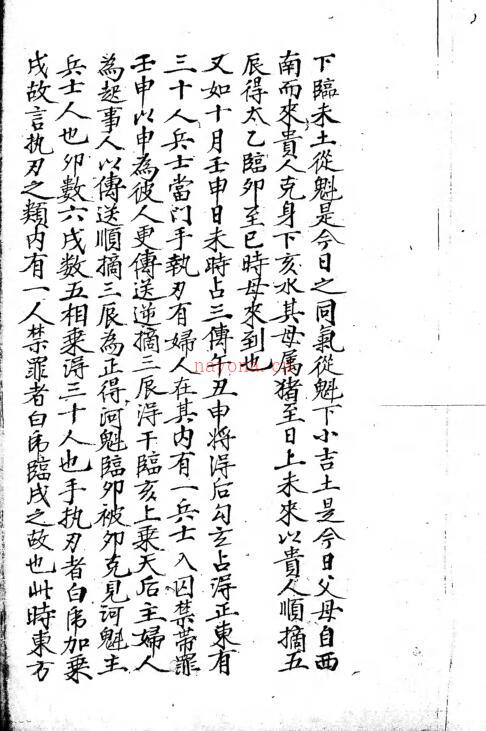 下臨未土從魁是今日之同氣從魁下小吉土是今日父母自西
南而來貴人克身下亥水其母属猪至日上未來以貴人順摘五
辰得太乙臨卯至巳時母來到也
又如十月壬申日未時占三傳午丑申將得后勾玄占得正東有
三十人兵士當门手執刃有婦人在其内有一兵士入囚禁帶罪
壬申以申為彼人更傳送逆摘三辰得干臨亥上乘天后主婦人
為起事人以傳送順摘三辰為正得河魁臨卯被卯克見河魁主
兵士人也卯數六戌數五相乘得三十人也手执刃者白虎加乘
戌故言执刃之類内有一人禁罪者白虎臨戌之故也此時東方
nayona.cn